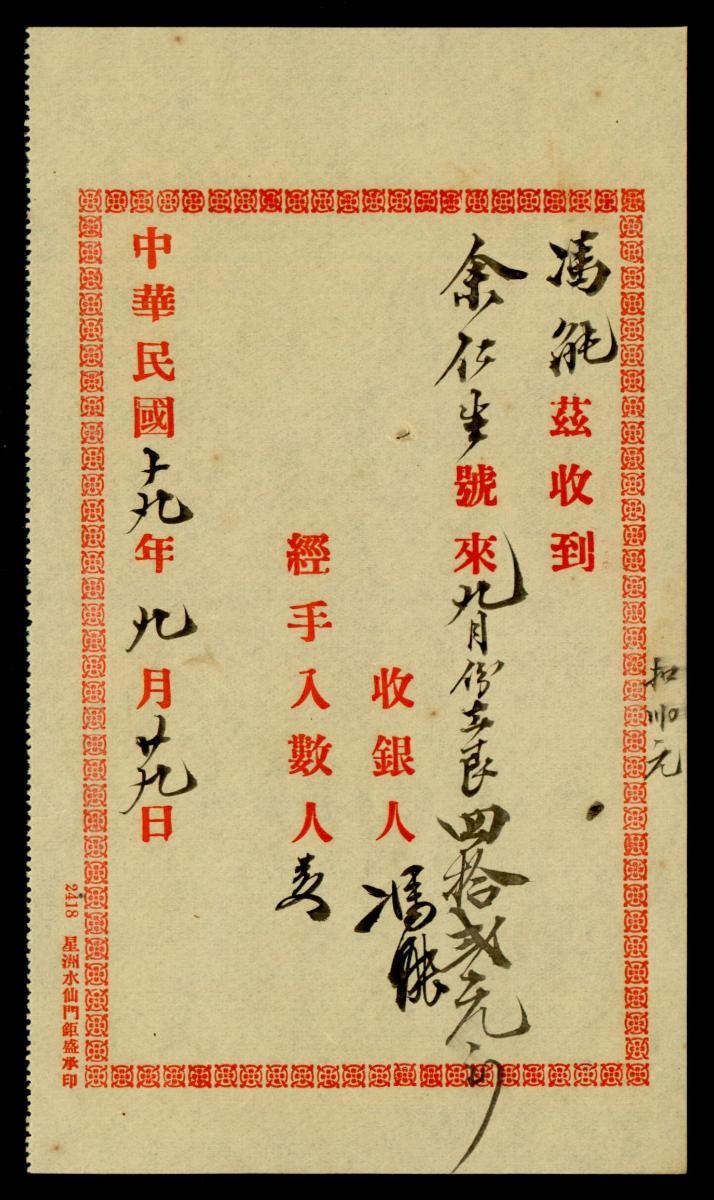 扣 元
馮能茲收到
余仁生號來九月份 四拾弍元
收銀人 馮能
經手入數人
中華民國十九年九月廿九日
2418 星洲水仙門鉅盛承印